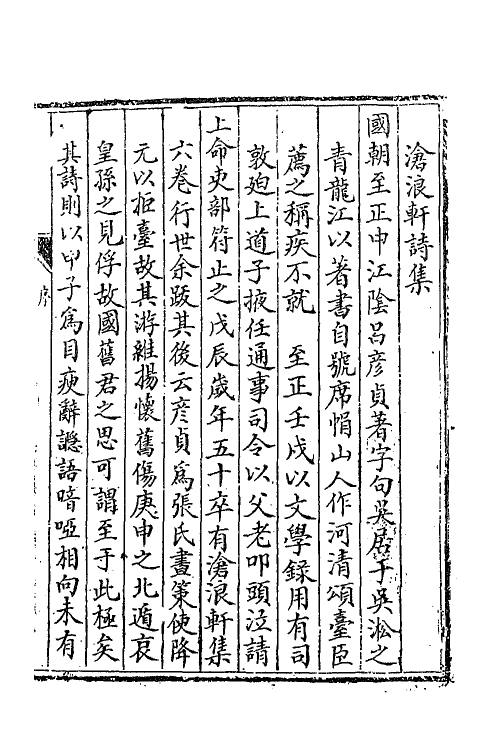 滄浪軒詩集
國朝至正中江陰呂彦貞著字句吳居于吳淞之
青龍江以著書自號席帽山人作河清頌臺臣
薦之稱疾不就　至正壬戌以文學録用有司
敦廹上道子掖任通事司令以父老叩頭泣請
上命吏部符止之戊辰歲年五十卒有滄浪軒集
六卷行世余䟦其後云彦貞爲張氏畫策使降
元以拒臺故其游維揚懷舊傷庚申之北遁哀
皇孫之見俘故國舊君之思可謂至于此極矣
其詩則以甲子爲目廋辭讔語喑啞相向未有
序